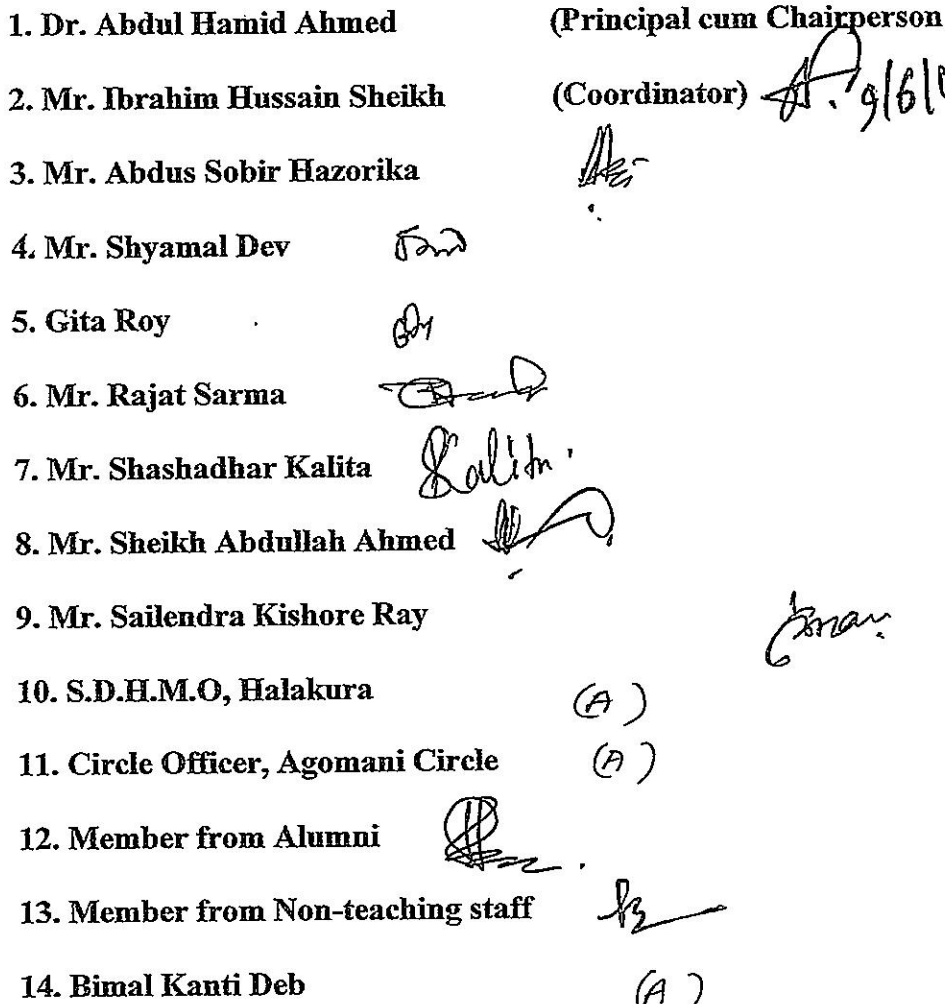 1. Dr. Abdul Hamid Ahmed (Principal cum Chairperson
2. Mr. Ibrahim Hussain Sheikh (Coordinator) 9/6/
3. Mr. Abdus Sobir Hazorika
4. Mr. Shyamal Dev
5. Gita Roy
6. Mr. Rajat Sarma
7. Mr. Shashadhar Kalita Kalita
8. Mr. Sheikh Abdullah Ahmed
9. Mr. Sailendra Kishore Ray
10. S.D.H.M.O, Halakura (A)
11. Circle Officer, Agomani Circle (A)
12. Member from Alumni
13. Member from Non-teaching staff
14. Bimal Kanti Deb (A)